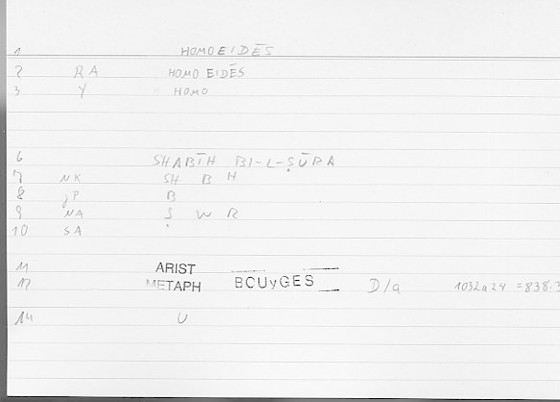 1 HOMOEIDĒS
2 RA HOMOEIDĒS
3 Y HOMO
6 SHABĪH BI-L-ṢŪRA
7 NK SH B H
8 JP B
9 NA Ṣ W R
10 SA
11 ARIST
12 METAPH BOUYGES D/a 1032a24 =838.3
14 U